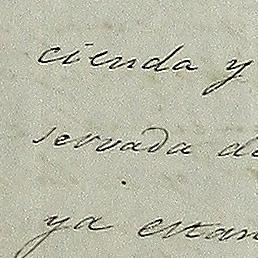 cienda y
servada de
ya estan